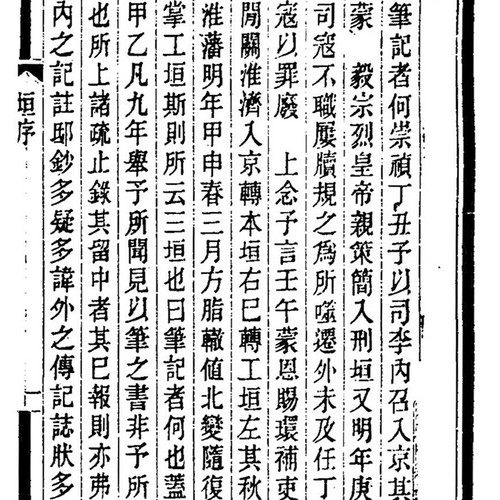 筆記者何崇禎丁丑予以司李內召入京其
蒙　毅宗烈皇帝親策簡入刑垣又明年庚
司寇不職屢牘規之爲所噬遷外未及任丁
寇以罪廢　上念予言壬午蒙恩賜環補吏
閒關淮濟入京轉本垣右巳轉工垣左其秋
淮藩明年甲申春三月方脂轍値北變隨復
掌工垣斯則所云三垣也曰筆記者何也蓋
甲乙凡九年舉予所聞見以筆之書非予所
也所上諸疏止錄其留中者其巳報則亦弗
內之記註邸鈔多疑多諱外之傳記誌狀多
垣序